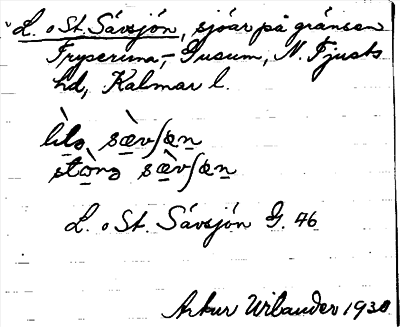 L. o St. Sävsjön, sjöar på gränsen
Fryserum, – Gusum, N. Tjusts
hd, Kalmar l.
lìlɔ sæ̀vʃæn
stɔ̀rɔ sæ̀vʃæn
L. o St. Sävsjön G. 46
Artur Wilander 1930